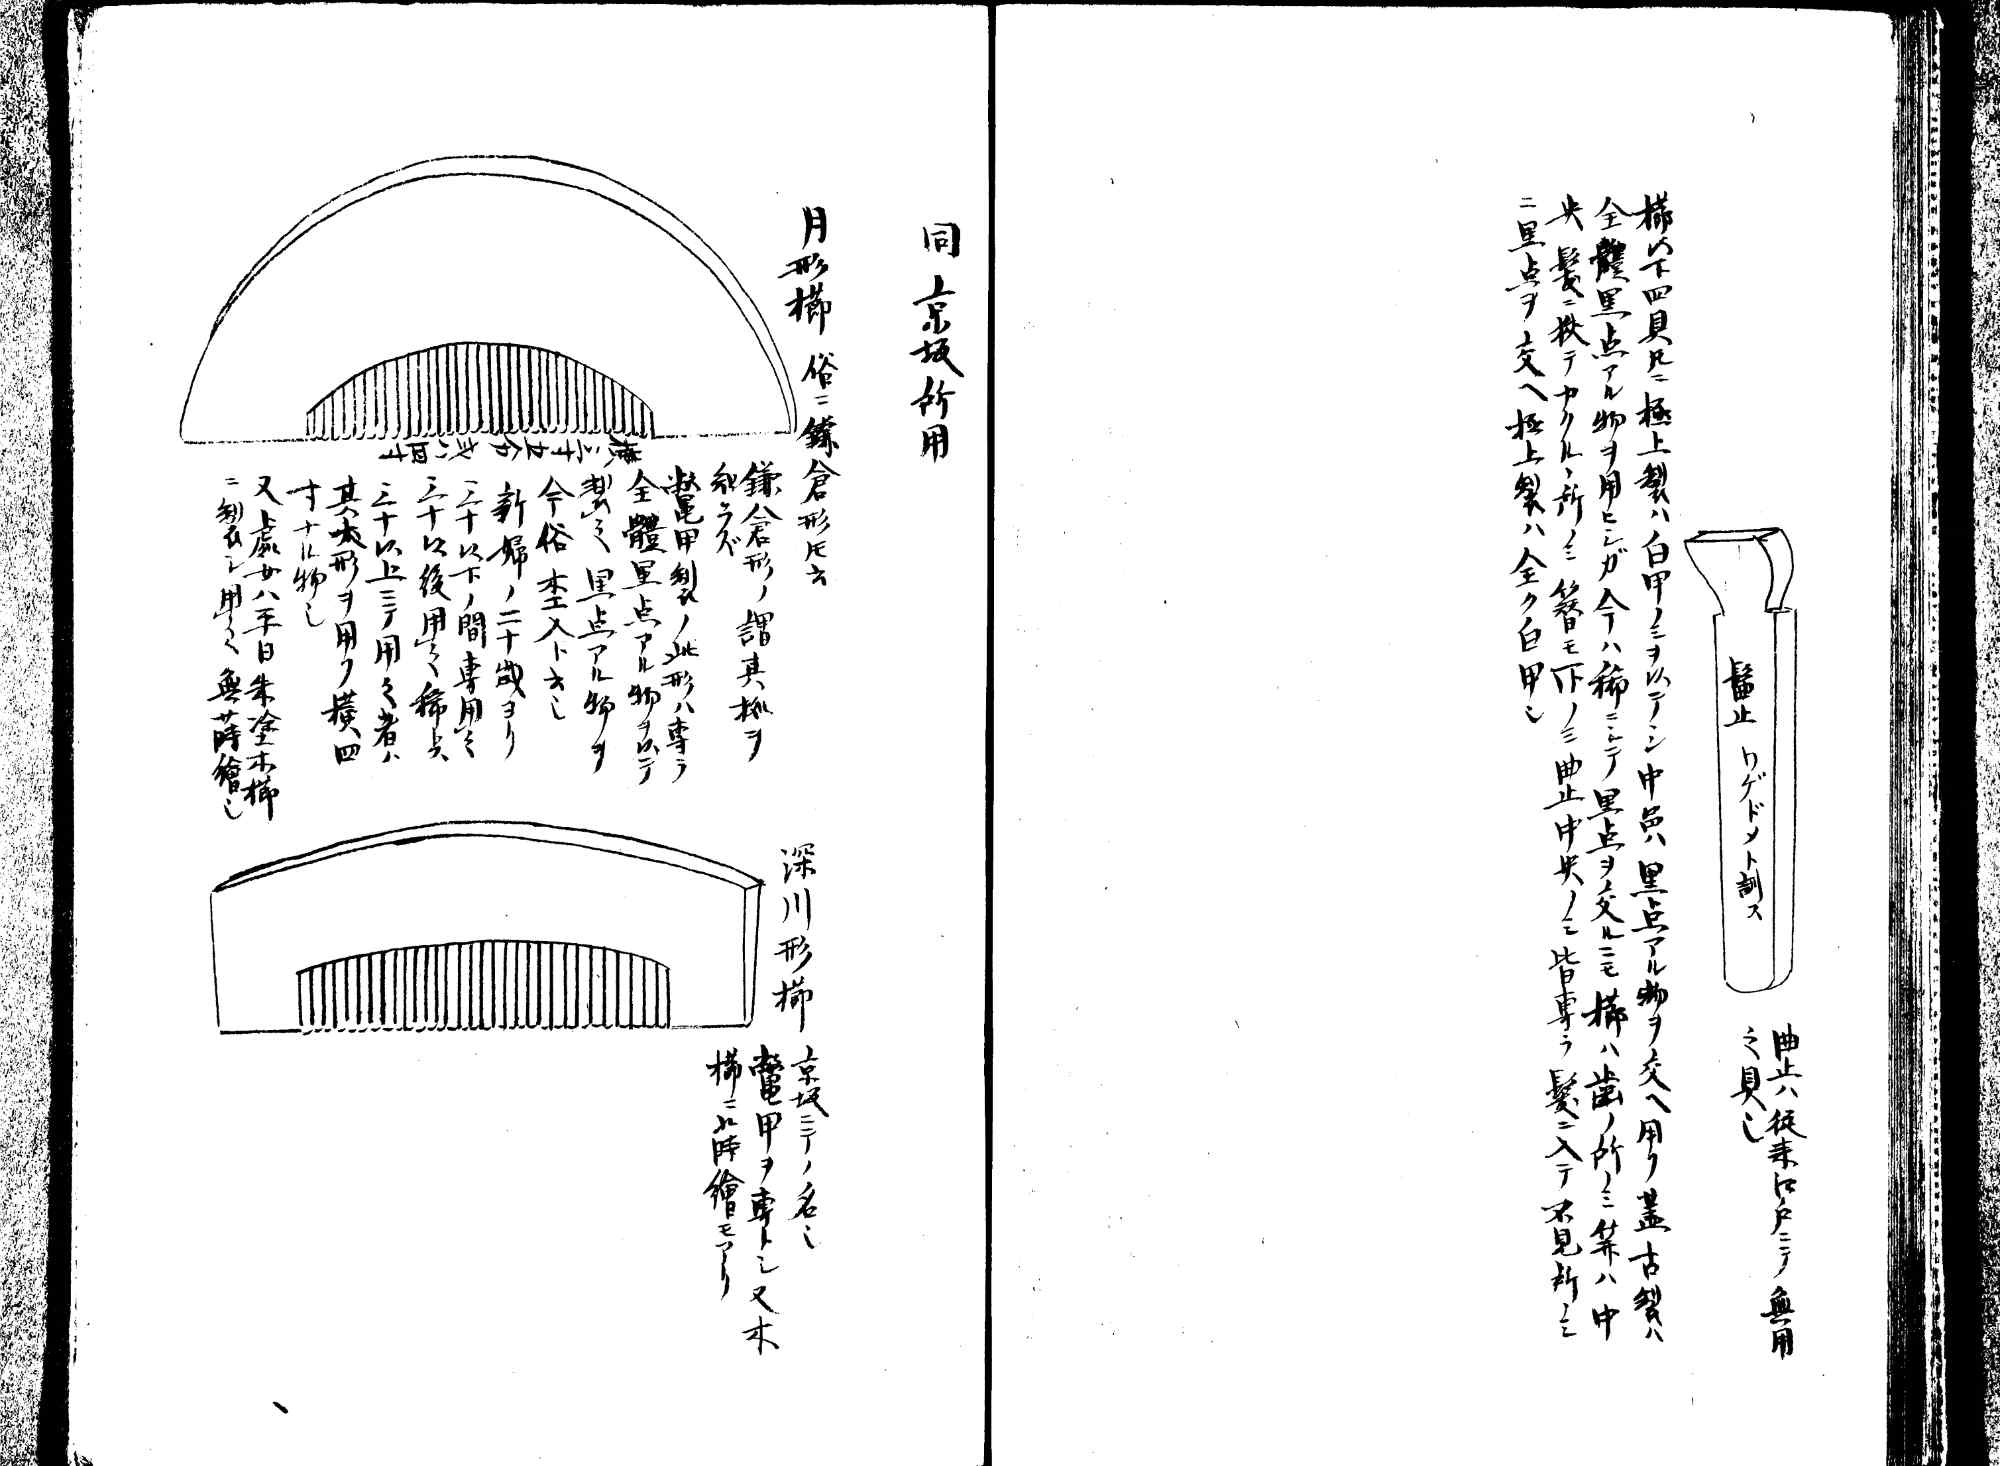 髷止 ワゲドメト訓ス
曲止ハ従来江戸ニテノ無用
之具也
櫛以下四具トモニ極上製ハ白甲ノミヲ以テシ中品ハ黒点アル物ヲ交ヘ用ク蓋古製ハ
全體黒点アル物ヲ用ヒシガ今ハ稀ニシテ黒点ヲ交ルニモ櫛ハ歯ノ所ノミ笄ハ中
央髪ニ狭テカクルヽ所ノミ簪モ下ノミ曲止中央ノミ皆専ラ髪ニ入テ不見所ノミ
ニ黒点ヲ交ヘ極上製ハ全ク白甲也
同 京坂所用
月形櫛 俗ニ鎌倉形トモ云
鎌倉形ノ謂其拠ヲ
知ラズ
鼈甲製ノ此形ハ専ラ
全體黒点アル物ヲ以テ
製之黒点アル物ヲ
今俗杢入ト云也
新婦ノ二十歳ヨリ
三十以下ノ間専用之
三十以後用之稀也
三十以上ニテ用之者ハ
其小形ヲ用フ横四
寸ナル物也
又處女ハ平日朱塗木櫛
ニ製シ用之無蒔繪也
横三寸五分或ハ四寸
深川形櫛
京坂ニテノ名也
鼈甲ヲ専トシ又木
櫛ニハ蒔繪モアリ